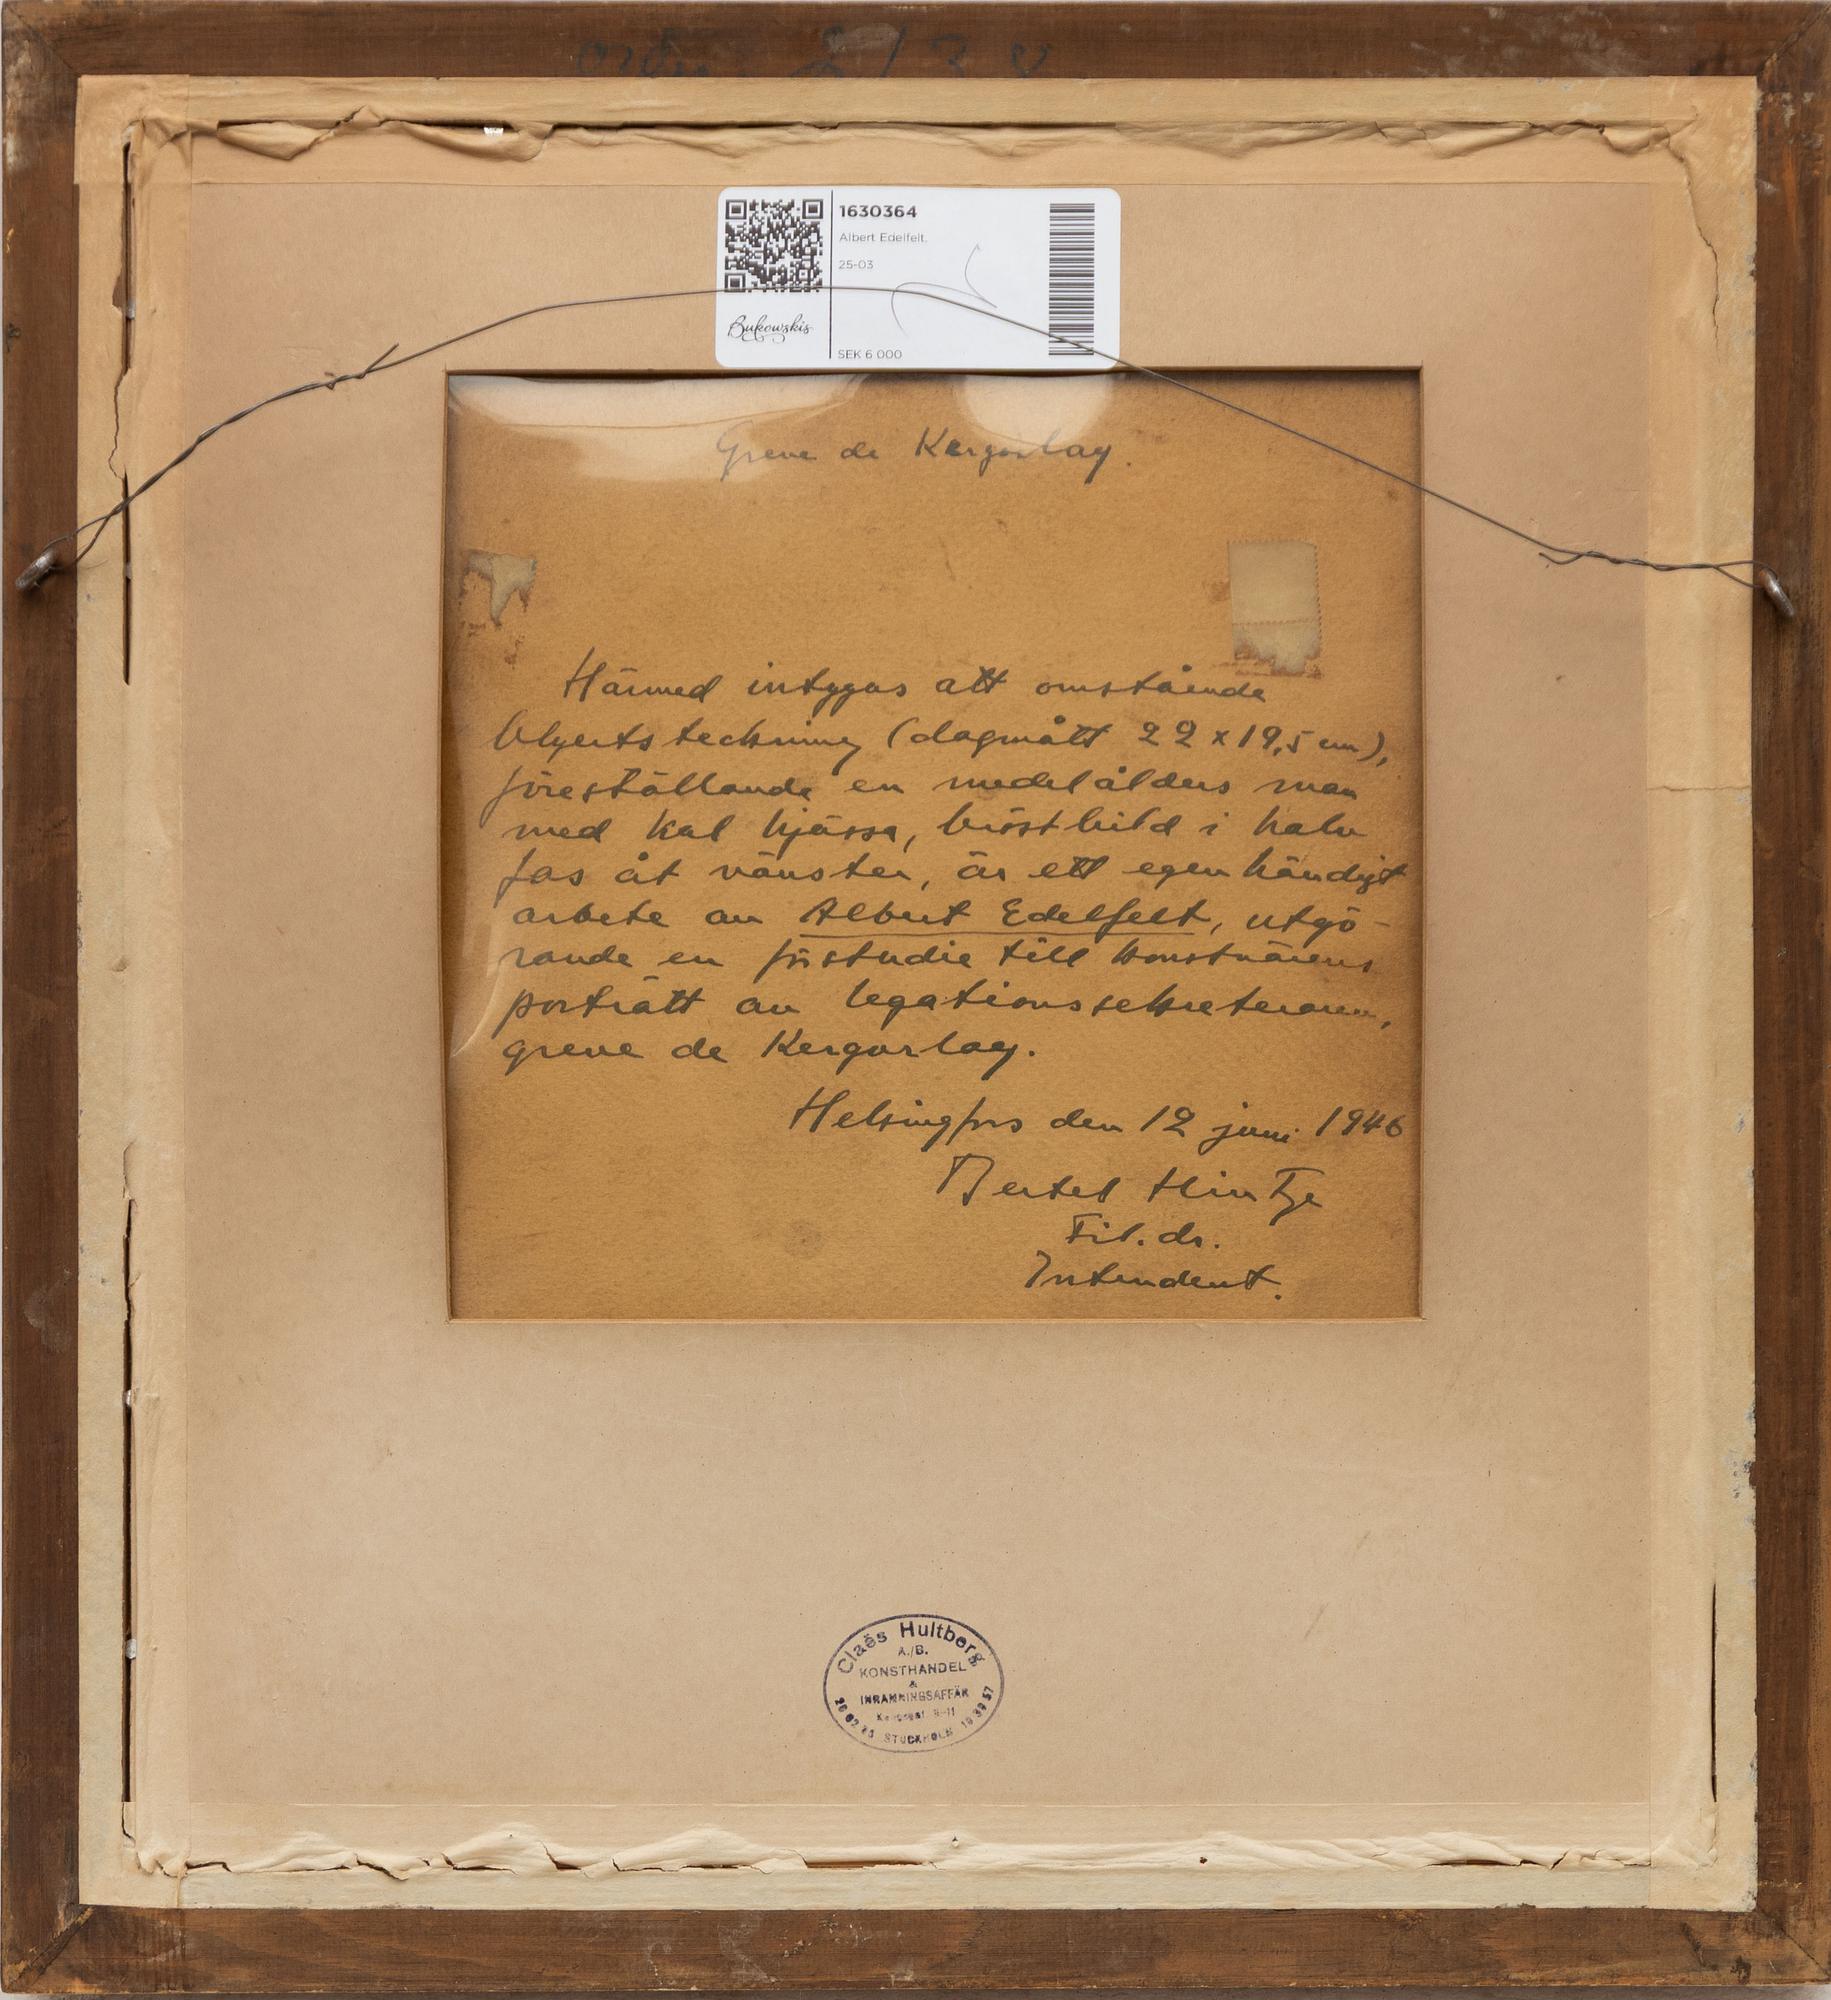 1630364
Albert Edelfelt,
25-03
Bukowskis
SEK 6 000
Greve de Kergorlay.
Härmed intygas att omstående
blyertsteckning (dagmått 22 x 19,5 cm),
föreställande en medelålders man
med kal hjässa, bröstbild i halv
fas åt vänster, är ett egenhändigt
arbete av Albert Edelfelt, utgö-
rande en förstudie till konstnärens
porträtt av legationssekreteraren,
greve de Kergorlay.
Helsingfors den 12 juni 1946
Bertel Hintze
Fil. dr.
Intendent.
Claës Hultberg
A./B.
KONSTHANDEL
&
INRAMNINGSAFFÄR
STOCKHOLM